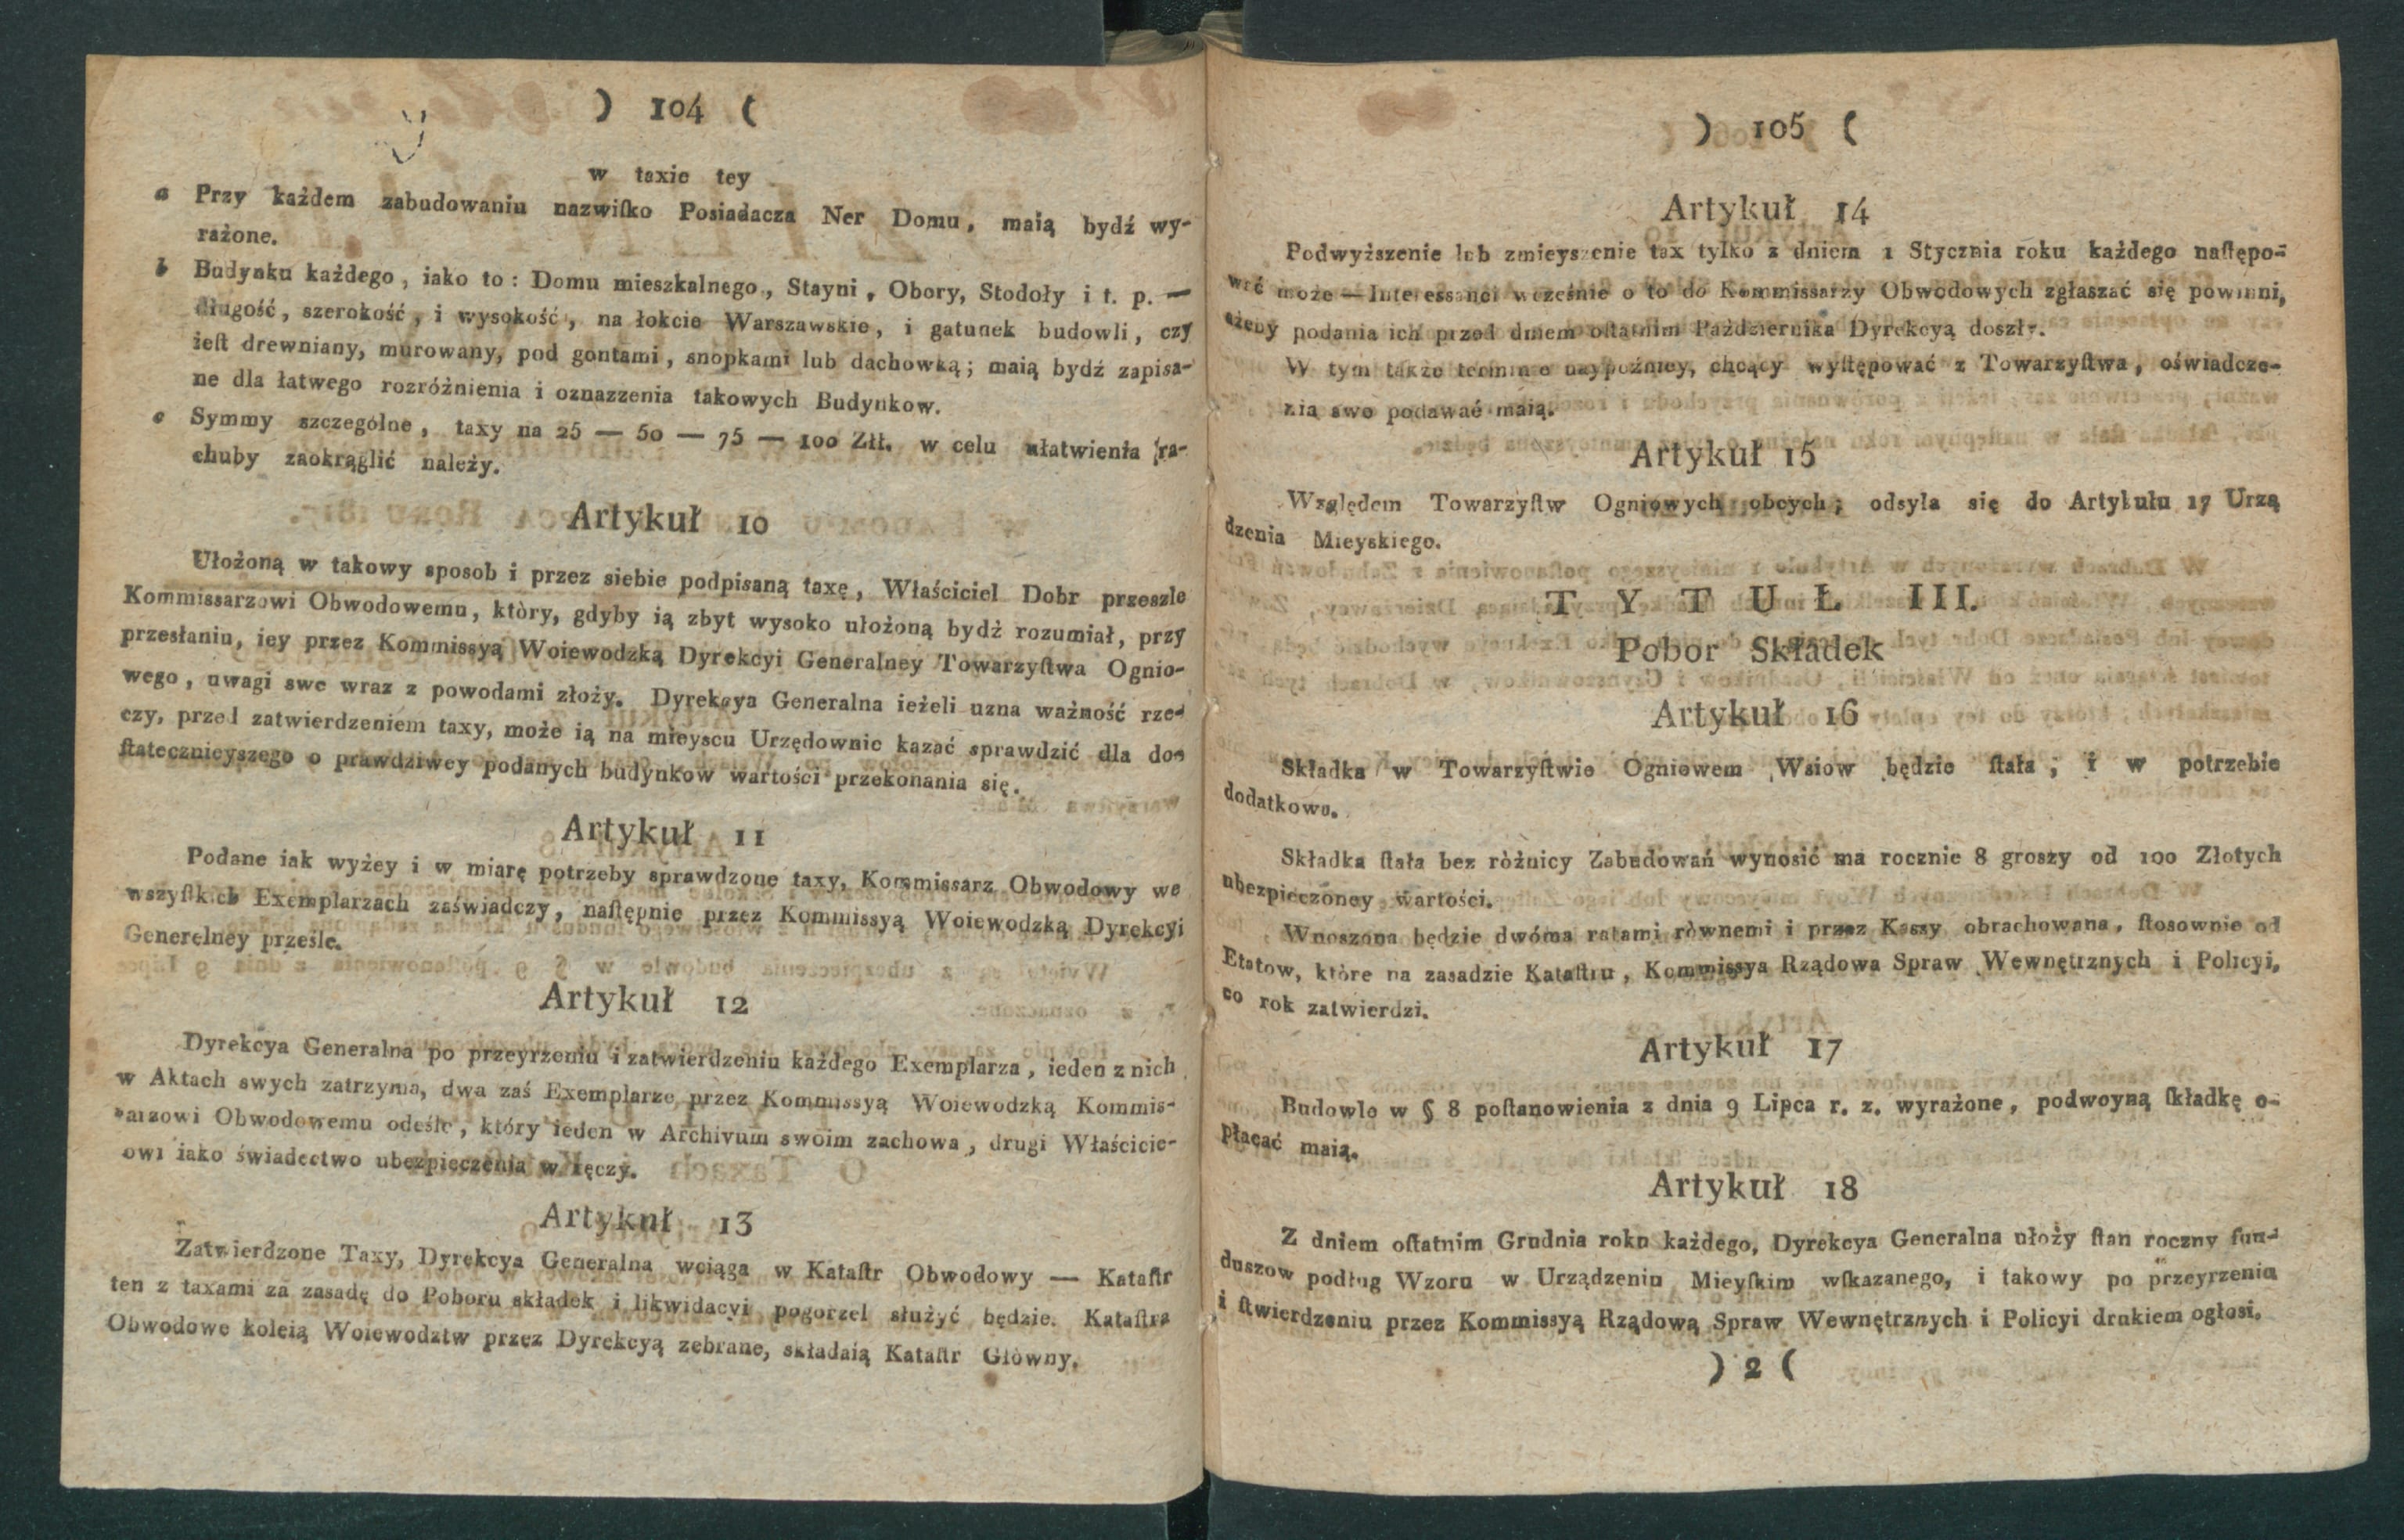 ) 104 (
w taxie tey
a Przy każdem zabudowaniu nazwiſko Posiadacza Ner Domu, maią bydź wy-
rażone.
b Budynku każdego, iako to: Domu mieszkalnego, Stayni, Obory, Stodoły i t. p. —
długość, szerokość, i wysokość, na łokcie Warszawskie, i gatunek budowli, czy
ieſt drewniany, murowany, pod gontami, snopkami lub dachowką; maią bydź zapisa-
ne dla łatwego rozróżnienia i oznazzenia takowych Budynkow.
c Symmy szczególne, taxy na 25 — 50 — 75 — 100 Złł. w celu ułatwienia ra-
chuby zaokrąglić należy.
Artykuł 10
Ułożoną w takowy sposob i przez siebie podpisaną taxę, Właściciel Dobr przeszle
Kommissarzowi Obwodowemu, ktòry, gdyby ią zbyt wysoko ułożoną bydż rozumiał, przy
przesłaniu, iey przez Kommissyą Woiewodzką Dyrekcyi Generalney Towarzyſtwa Ognio-
wego, uwagi swe wraz z powodami złoży. Dyrekcya Generalna ieżeli uzna ważność rze-
czy, przed zatwierdzeniem taxy, może ią na mieyscu Urzędownie kazać sprawdzić dla do-
ſtatecznieyszego o prawdziwey podanych budynkow wartości przekonania się.
Artykuł 11
Podane iak wyżey i w miarę potrzeby sprawdzone taxy, Kommissarz Obwodowy we
wszyſtkich Exemplarzach zaświadczy, naſtępnie przez Kommissyą Woiewodzką Dyrekcyi
Generelney prześle.
Artykuł 12
Dyrekcya Generalna po przeyrzeniu i zatwierdzeniu każdego Exemplarza, ieden z nich
w Aktach swych zatrzyma, dwa zaś Exemplarze przez Kommissyą Woiewodzką Kommis-
sarzowi Obwodowemu odeśle, który ieden w Archivum swoim zachowa, drugi Właścicie-
owi iako świadectwo ubezpieczenia w ręczy.
Artyknł 13
Zatwierdzone Taxy, Dyrekcya Generalna wciąga w Kataſtr Obwodowy — Kataſtr
ten z taxami za zasadę do Poboru składek i likwidacyi pogorzel służyć będzie. Kataſtra
Obwodowe koleią Woiewodztw przez Dyrekcyą zebrane, składaią Kataſtr Głòwny.
) 105 (
Artykuł 14
Podwyższenie lub zmieyszenie tax tylko z dniem 1 Stycznia roku każdego naſtępo-
wać może — Interessanci wcześnie o to do Kommissarzy Obwodowych zgłaszać się powinni,
ażeby podania ich przed dniem oſtatnim Października Dyrekcyą doszły.
W tym także terminie naypoźniey, chcący wyſtępować z Towarzyſtwa, oświadcze-
nia swe podawać maią.
Artykuł 15
Względem Towarzyſtw Ogniowych obcych; odsyła się do Artykułu 17 Urzą
dzenia Mieyskiego.
T Y T U Ł III.
Pobor Składek
Artykuł 16
Składka w Towarzyſtwie Ogniowem Wsiow będzie ſtała, i w potrzebie
dodatkowa.
Składka ſtała bez ròżnicy Zabudowań wynosić ma rocznie 8 groszy od 100 Złotych
ubezpieczoney wartości.
Wnoszona będzie dwóma ratami ròwnemi i przez Kassy obrachowana, ſtosownie od
Etatow, które na zasadzie Kataſtru, Kommissya Rządowa Spraw Wewnętrznych i Policyi,
co rok zatwierdzi.
Artykuł 17
Budowle w § 8 poſtanowienia z dnia 9 Lipca r. z. wyrażone, podwoyną ſkładkę o-
płacać maią.
Artykuł 18
Z dniem oſtatnim Grudnia roku każdego, Dyrekcya Generalna ułoży ſtan roczny fun-
duszow podług Wzoru w Urządzeniu Mieyſkim wſkazanego, i takowy po przeyrzeniu
i ſtwierdzeniu przez Kommissyą Rządową Spraw Wewnętrznych i Policyi drukiem ogłosi.
) 2 (